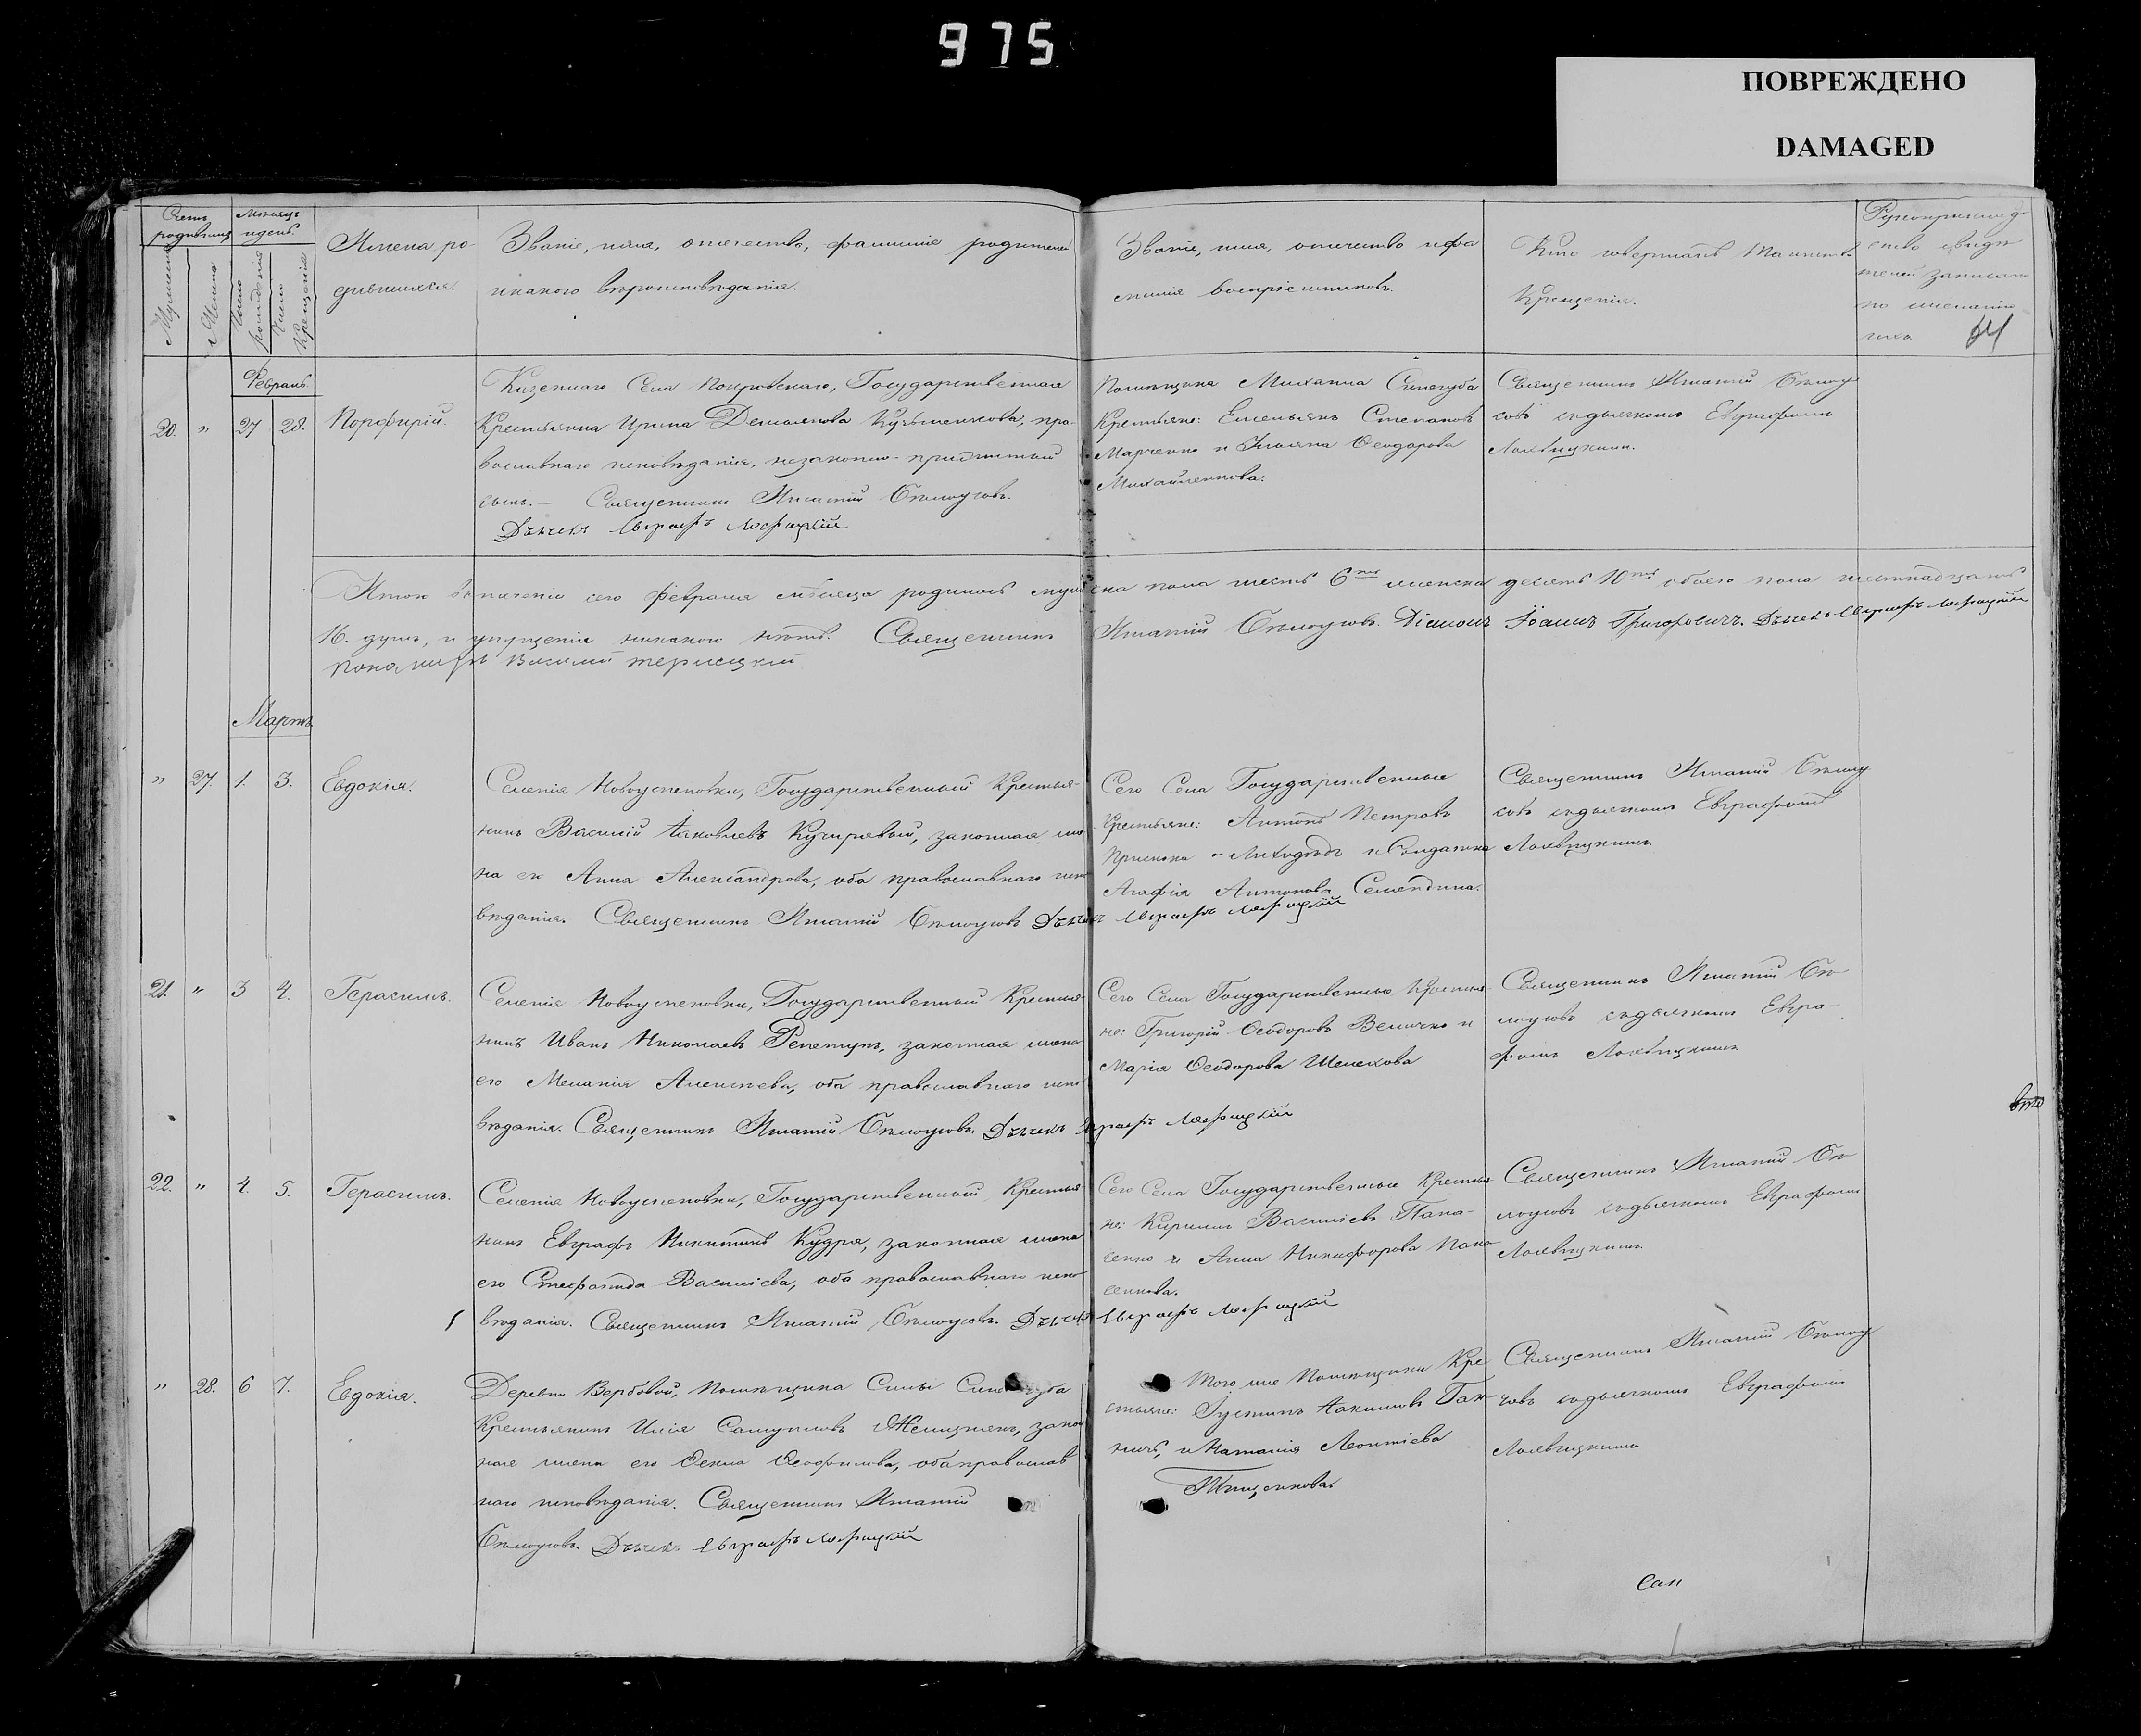 975
ПОВРЕЖДЕНО
DAMAGED
Счетъ родившихся
Мужеска
Женска
Мѣсяцъ и день
Число рожденія
Число Крещенія
Имена ро-
дившихся.
Званіе, имя, отечество, фамилія родителей
и какого вѣроисповѣданія.
Званіе, имя, отечество и фа
милія воспріемниковъ.
Кто совершалъ Таинство
Крещенія.
Рукоприкладство свидѣ
телей записи
по желанію
64
Февраль
20. " 27 28. Порфирій.
Казеннаго Села Покровскаго, Государственная
Крестьянка Ирина Демьянова Кузьменкова, пра-
вославнаго исповѣданія, незаконно-прижитый
сынъ. — Священникъ Игнатій Бѣлоусовъ.
Дьячекъ Евграфъ
Помѣщика Михаила Синегуба
Крестьяне: Емельянъ Степановъ
Марченко и Ульяна Ѳеодорова
Михайленкова.
Священникъ Игнатій Бѣлоу
совъ съ дьячкомъ Евграфомъ
Итого въ теченіи сего Февраля мѣсяца родилось мужеска пола шесть 6ть женска десять 10ть обоего пола шестнадцать
16. душъ, и упущенія никакого нѣтъ. Священникъ Игнатій Бѣлоусовъ. Діаконъ Іоаннъ Григоровичъ. Дьячекъ Евграфъ
Пономарь Василій
Мартъ.
" 27. 1. 3. Евдокія.
Селенія Новоуспеновки, Государственный Крестья-
нинъ Василій Яковлевъ Кучерявый, законная же-
на ея Анна Александрова, оба православнаго испо
вѣданія. Священникъ Игнатій Бѣлоусовъ Дьячекъ Евграфъ
Сего Села Государственные
Крестьяне: Антонъ Петровъ
и Солдатка
Агафія Антонова
Священникъ Игнатій Бѣлоу
совъ съ дьячкомъ Евграфомъ
21. " 3 4. Герасимъ.
Селенія Новоуспеновки, Государственный Крестья-
нинъ Иванъ Николаевъ Репетунъ, законная жена
его Меланія Алексѣева, оба православнаго испо
вѣданія. Священникъ Игнатій Бѣлоусовъ. Дьячекъ Евграфъ
Сего Села Государственные Крестья-
не: Григорій Ѳеодоровъ Величко и
Марія Ѳеодорова Шелехова
Священникъ Игнатій Бѣ
лоусовъ съ дьячкомъ Евгра-
фомъ
22. " 4. 5. Герасимъ.
Селенія Новоуспеновки, Государственный Крестья-
нинъ Евграфъ Никитинъ Кудря, законная жена
его Стефанида Василіева, оба православнаго испо
вѣданія. Священникъ Игнатій Бѣлоусовъ. Дьячекъ Евграфъ
Сего Села Государственные Крестья
не: Кирилъ Василіевъ Пана-
сенко и Анна Никифорова Пана
сенкова.
Священникъ Игнатій Бѣ
лоусовъ съ дьячкомъ Евграфомъ
" 28. 6 7. Евдокія.
Деревни Вербовой, Помѣщика Силы Синегуба
Крестьянинъ Илія Самуиловъ закон
ная жена его Ѳекла Ѳеофилова, оба православ
наго исповѣданія. Священникъ Игнатій
Бѣлоусовъ. Дьячекъ Евграфъ
Того же Помѣщика Кре
стьяне: Іустинъ Акимовъ
и Наталія Леонтіева
Тищенкова
Священникъ Игнатій Бѣлоу
совъ съ дьячкомъ Евграфомъ